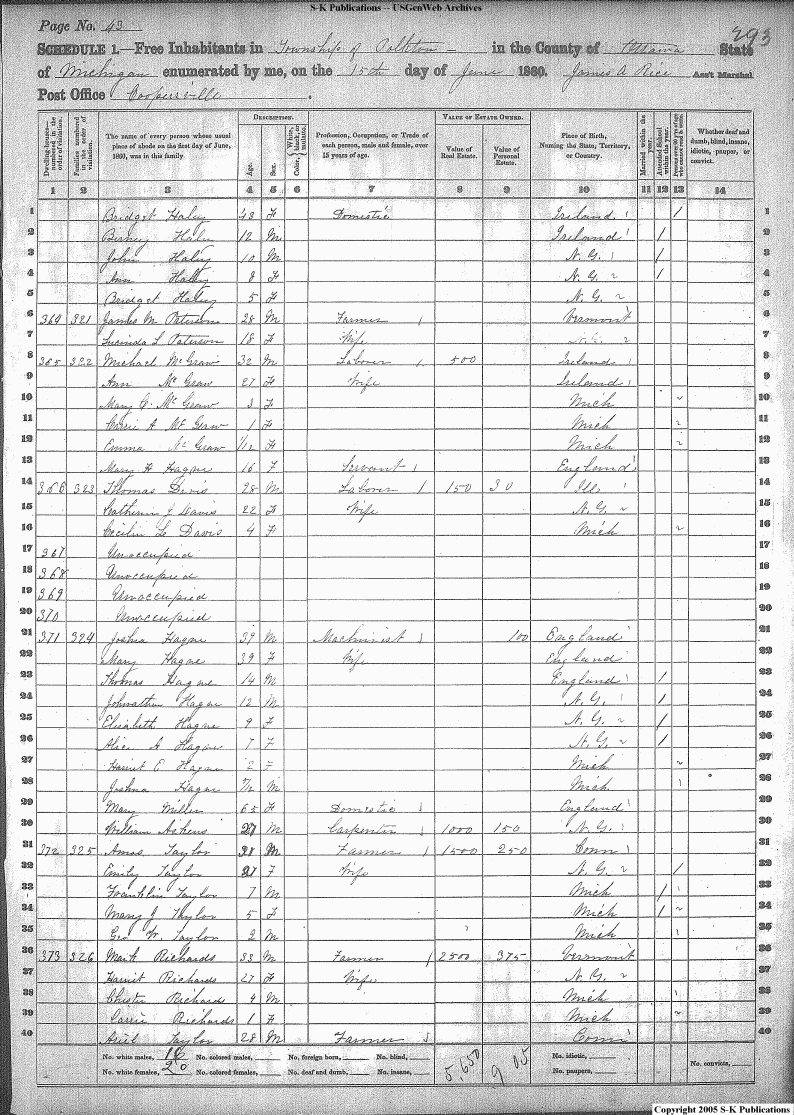 S-K Publications -- USGenWeb Archives
Page No. 43
293
SCHEDULE 1.—Free Inhabitants in Township of Polkton in the County of Ottawa State
of Michigan enumerated by me, on the 15th day of June 1860. James A Rice Ass't Marshal
Post Office Coopersville.
Dwelling-houses—numbered in the order of visitation.
Families numbered in the order of visitation.
The name of every person whose usual place of abode on the first day of June, 1860, was in this family.
DESCRIPTION.
Age.
Sex.
Color, { White, black, or mulatto.
Profession, Occupation, or Trade of each person, male and female, over 15 years of age.
VALUE OF ESTATE OWNED.
Value of Real Estate.
Value of Personal Estate.
Place of Birth, Naming the State, Territory, or Country.
Married within the year.
Attended School within the year.
Persons over 20 y'rs of age who cannot read & write.
Whether deaf and dumb, blind, insane, idiotic, pauper, or convict.
1 2 3 4 5 6 7 8 9 10 11 12 13 14
1 Bridget Haley 48 F Domestic Ireland / 1
2 Haley 12 M Ireland / 2
3 John Haley 10 M N. Y. / 3
4 Ann Haley 8 F N. Y. / 4
5 Bridget Haley 5 F N. Y. 5
6 364 321 James M Paterson 28 M Farmer Vermont 6
7 Lucinda L Paterson 18 F Wife 7
8 365 322 Michael McGraw 32 M Laborer 500 Ireland 8
9 Ann McGraw 27 F Wife Ireland 9
10 Mary C. McGraw 3 F Mich 10
11 Carrie A McGraw 1 F Mich 11
12 Emma McGraw 1/12 F Mich 12
13 Mary H Hague 16 F Servant England 13
14 366 323 Thomas Davis 28 M Laborer 150 30 Ill. 14
15 Catherin J Davis 22 F Wife N. Y. 15
16 Cecilia Le Davis 4 F Mich 16
17 367 Unoccupied 17
18 368 Unoccupied 18
19 369 Unoccupied 19
20 370 Unoccupied 20
21 371 324 Joshua Hague 39 M Machinist 100 England 21
22 Mary Hague 39 F Wife England 22
23 Thomas Hague 14 M England / 23
24 Johnathan Hague 12 M N. Y. / 24
25 Elizabeth Hague 9 F N. Y. / 25
26 Alice A Hague 7 F N. Y. / 26
27 Harriet E Hague 2 F Mich 27
28 Joshua Hague /12 M Mich 28
29 Mary Miller 65 F Domestic England 29
30 William 27 M Carpenter 1000 150 N. Y. 30
31 372 325 Amos Taylor 38 M Farmer 1500 250 Conn 31
32 Emily Taylor 27 F Wife N. Y. / 32
33 Franklin Taylor 7 M Mich / 33
34 Mary J Taylor 5 F Mich / 34
35 Geo W. Taylor 2 M Mich 35
36 373 326 Mark Richards 33 M Farmer 2500 375 Vermont 36
37 Harriet Richards 27 F Wife N. Y. 37
38 Chester Richards 4 M Mich 38
39 Carrie Richards 1 F Mich 39
40 Ariel Taylor 28 M Farmer Conn 40
No. white males, 16 No. colored males, No. foreign born, No. blind, 5,650 905 No. idiotic, No. convicts,
No. white females, 20 No. colored females, No. deaf and dumb, No. insane, No. paupers,
Copyright 2005 S-K Publications